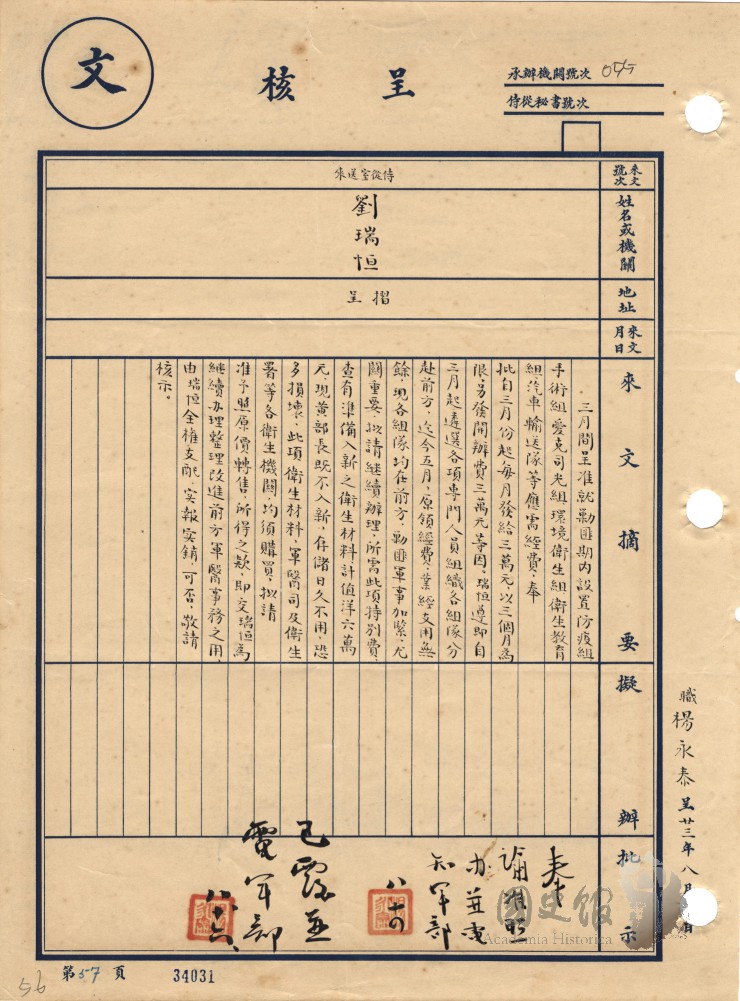 文
呈核
承辦機關號次
侍從秘書號次
來文號次
侍從室送來
姓名或機關
劉瑞恒
地址
摺呈
來文月日
來文摘要
三月間呈准就勦匪期内設置防疫組
手術組愛克司光組環境衛生組衛生教育
組汽車輸送隊等應需經費，奉
批自三月份起每月發給三萬元以三個月為
限，另發開辦費三萬元等因。瑞恒遵即自
三月起遴選各項專門人員組織各組隊分
赴前方，迄今五月，原領經費，業經支用無
餘，現各組隊均在前方，勦匪軍事加緊，尤
關重要，擬請繼續辦理，所需此項特別費，
查有準備入新之衛生材料，計值洋六萬
元，現黄部長既不入新，存儲日久不用，恐
多損壞，此項衛生材料，軍醫司及衛生
署等各衛生機關，均須購買，擬請
准予照原價轉售，所得之欵，即交瑞恒為
繼續办理整理改進前方軍醫事務之用，
由瑞恒全權支配，实報实銷，可否，敬請
核示。
擬辦
批示
奉
諭准照
办並電
知军部
八十四
已覆並
電军部
八十六
職楊永泰呈廿三年八月日
國史館
Academia Historica
第57頁
34031
56